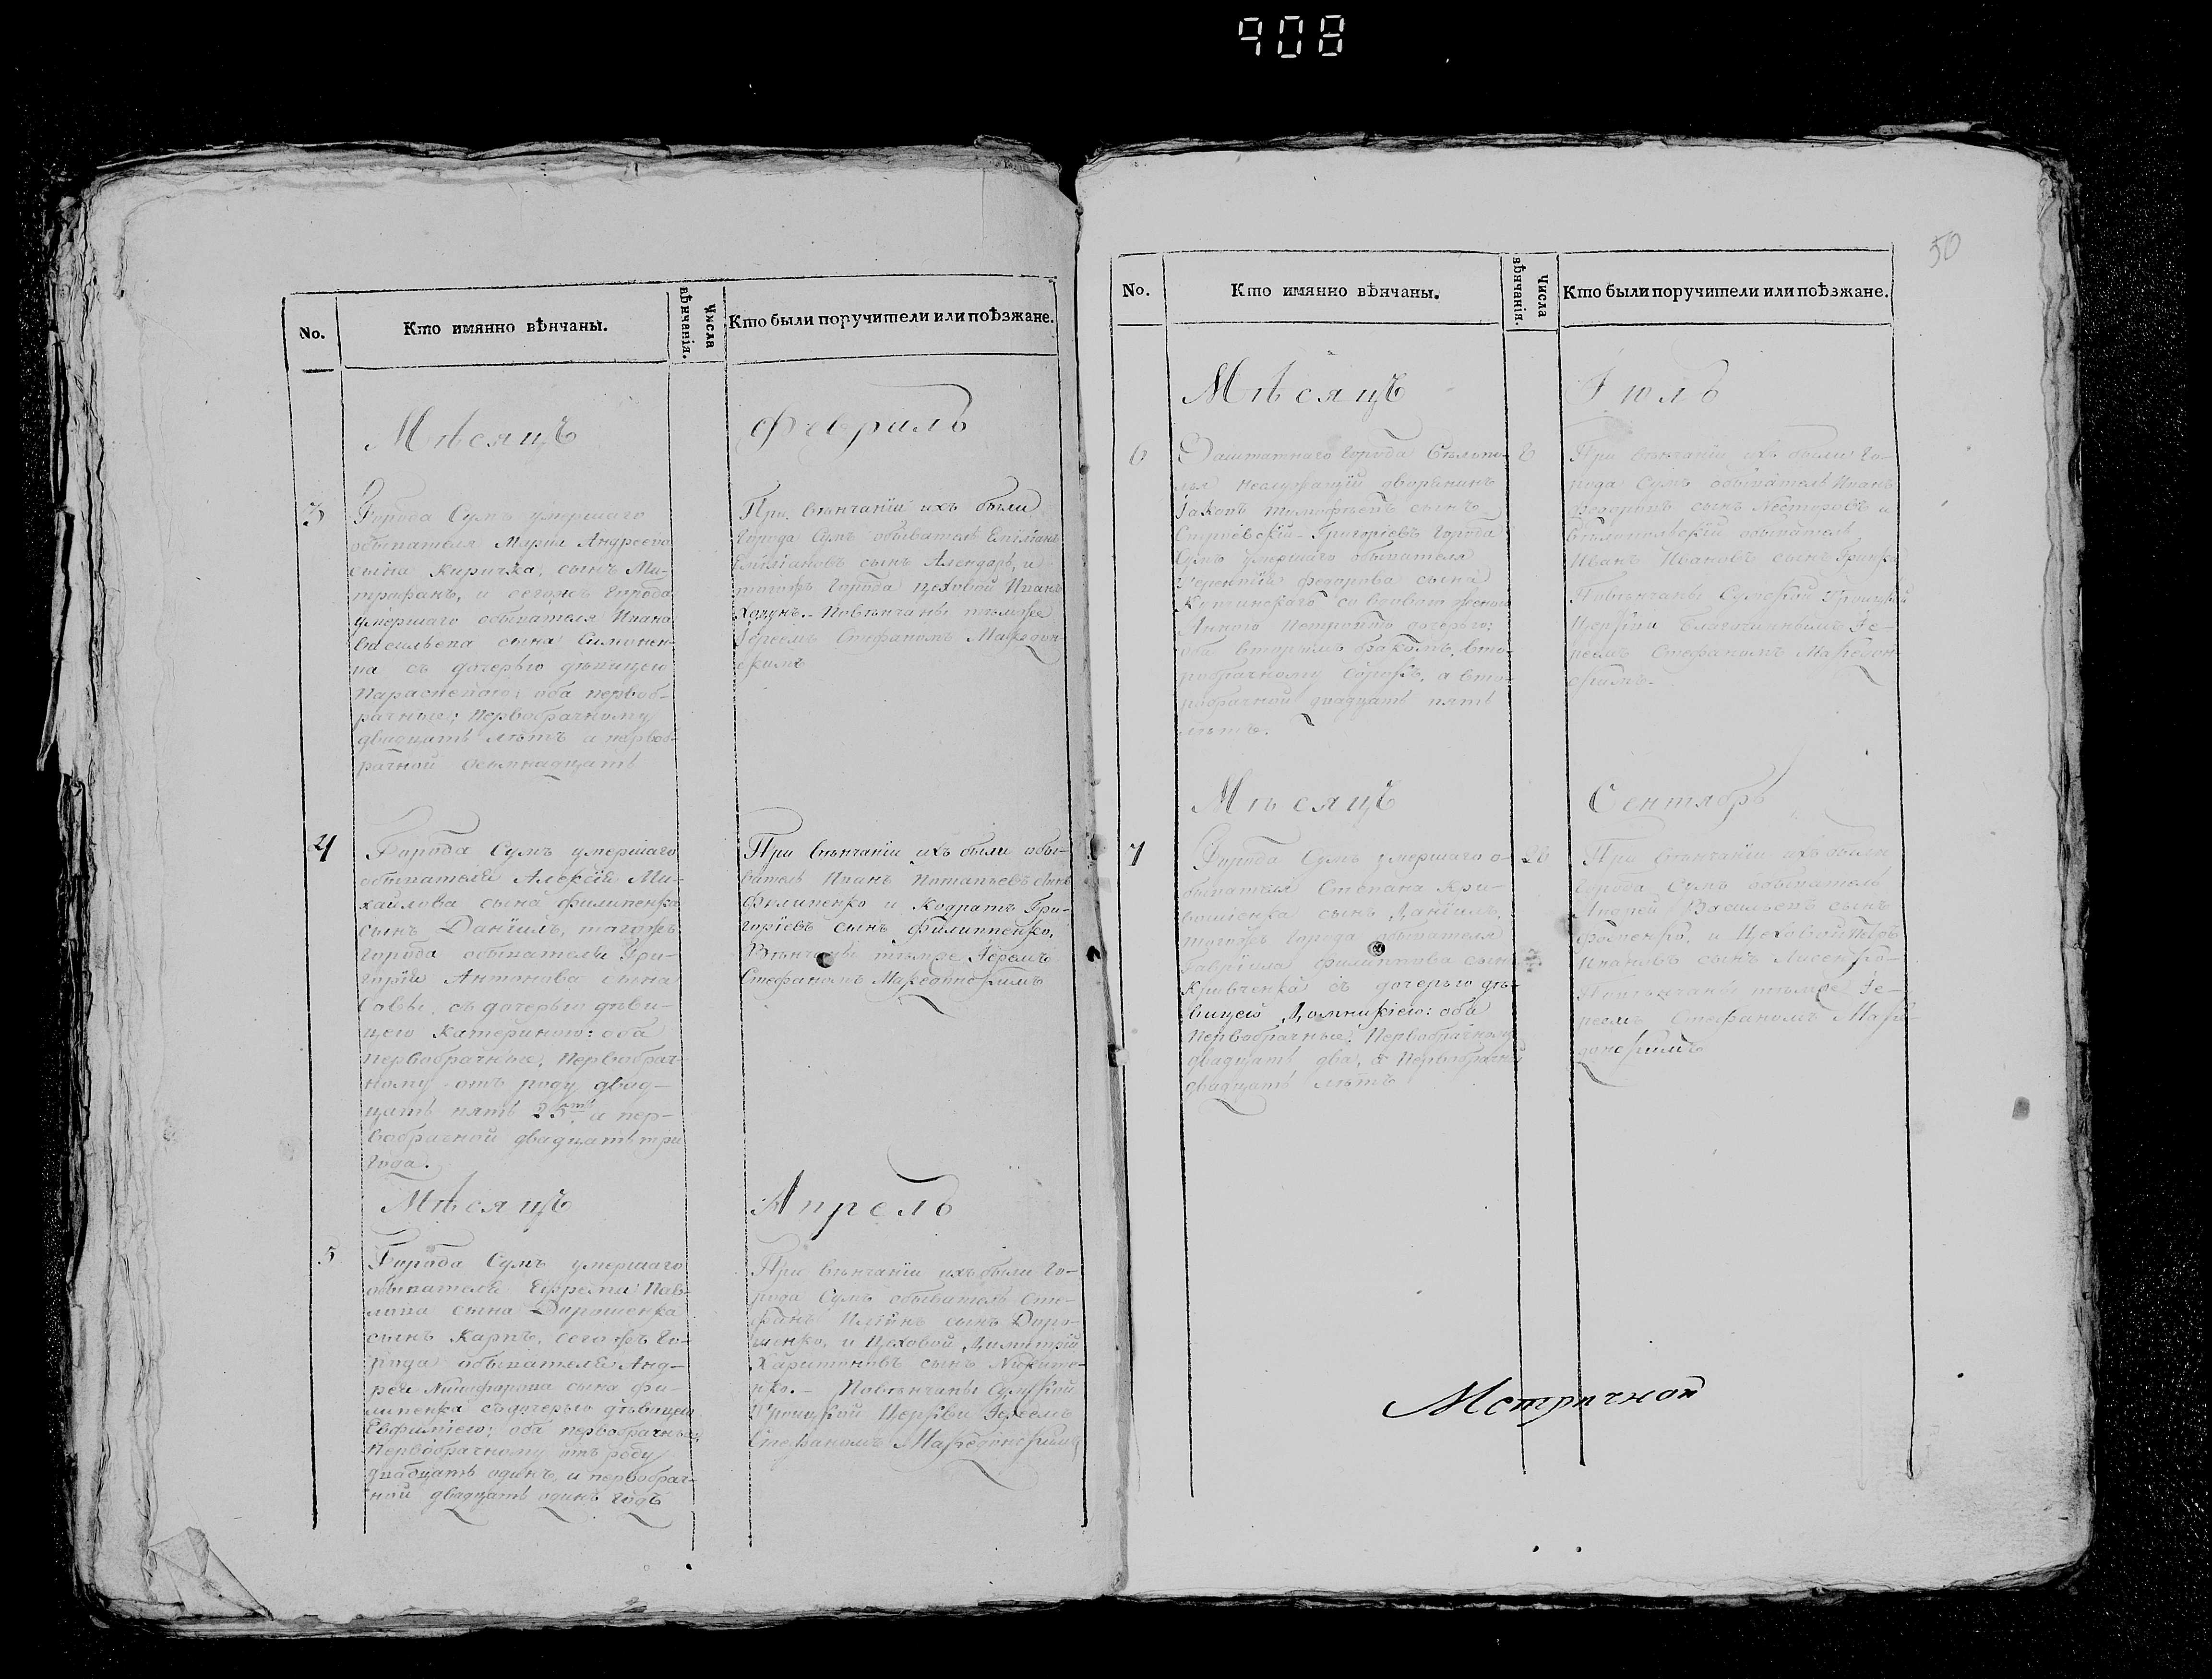 908
50
No.
Кто имянно вѣнчаны.
Числа вѣнчанія.
Кто были поручители или поѣзжане.
Мѣсяцъ
Февраль
3
Города Сумъ умершаго
обывателя Марка Андреева
сына Киричка, сынъ Ми-
трофанъ, и сегожъ города
умершаго обывателя Ивана
Васильева сына Симонен-
ка съ дочерью дѣвицею
Параскевіею: оба первоб-
рачные; Первобрачному
двадцать лѣтъ а первоб-
рачной осьмнадцать
При вѣнчаніи ихъ были
города Сумъ обыватель Емиліанъ
Емиліановъ сынъ и
тогожъ города цеховой Иванъ
Повѣнчаны тѣмже
Іереемъ Стефаномъ Македон-
скимъ
4
Города Сумъ умершаго
обывателя Алексѣя Ми-
хайлова сына Филипенка
сынъ Даніилъ, тогожъ
города обывателя Гри-
горія Антонова сына
Савы, съ дочерью дѣви-
цею Катериною: оба
первобрачные, Первобрач-
ному отъ роду двад-
цать пять 25ть и пер-
вобрачной двадцать три
года.
При вѣнчаніи ихъ были обы-
ватель Иванъ Потапьевъ сынъ
Филипенко и Кодратъ Гри-
горіевъ сынъ Филиппенко,
Вѣнчаны тѣмже Іереемъ
Стефаномъ Македонскимъ
Мѣсяцъ
Апрель
5
Города Сумъ умершаго
обывателя Ефрема Пав-
лова сына Дорошенка
сынъ Карпъ, сего жъ го-
рода обывателя Анд-
рея Никифорова сына Фи-
липенка съ дочерью дѣвицею
Евфиміею; оба первобрачные
Первобрачному отъ роду
двадцать одинъ, и первобрач-
ной двадцать одинъ годъ
При вѣнчаніи ихъ были го-
рода Сумъ обыватель Сте-
фанъ сынъ Доро-
шенко, и Цеховой Димитрій
Харитоновъ сынъ Никите-
нко. - Повѣнчаны Сумской
Троицкой Церкви Іереемъ
Стефаномъ Македонскимъ
No.
Кто имянно вѣнчаны.
Числа вѣнчанія.
Кто были поручители или поѣзжане.
Мѣсяцъ
Іюль
6
Заштатнаго города Бѣлопо-
лья неслужащій дворянинъ
Іаковъ Тимофѣевъ сынъ
Григоріевъ города
Сумъ умершаго обывателя
Терентія Федорова сына
со вдовою женою
Анною Петровою дочерью:
оба вторымъ бракомъ, вто-
робрачному сорокъ, а вто-
робрачной двадцать пять
лѣтъ.
При вѣнчаніи ихъ были го-
рода Сумъ обыватель Иванъ
сынъ Несторовъ и
Бѣлопольскій обыватель
Иванъ Ивановъ сынъ
Повѣнчаны Сумской Троицкой
Церкви Благочиннымъ Іе-
реемъ Стефаномъ Македон-
скимъ.
Мѣсяцъ
Сентябрь
7
Города Сумъ умершаго о-
бывателя Степана Кри-
сынъ Даніилъ,
тогожъ города обывателя
Гавріила Филиппова сына
Кривченка съ дочерью дѣ-
вицею Домникіею: оба
Первобрачные; Первобрачному
двадцать два, а Первобрачной
двадцать лѣтъ
При вѣнчаніи ихъ были
города Сумъ обыватель
Андрей Васильевъ сынъ
и Цеховой
Ивановъ сынъ Лисенко
Повѣнчаны тѣмже Іе-
реемъ Стефаномъ Маке
донскимъ
Метричной